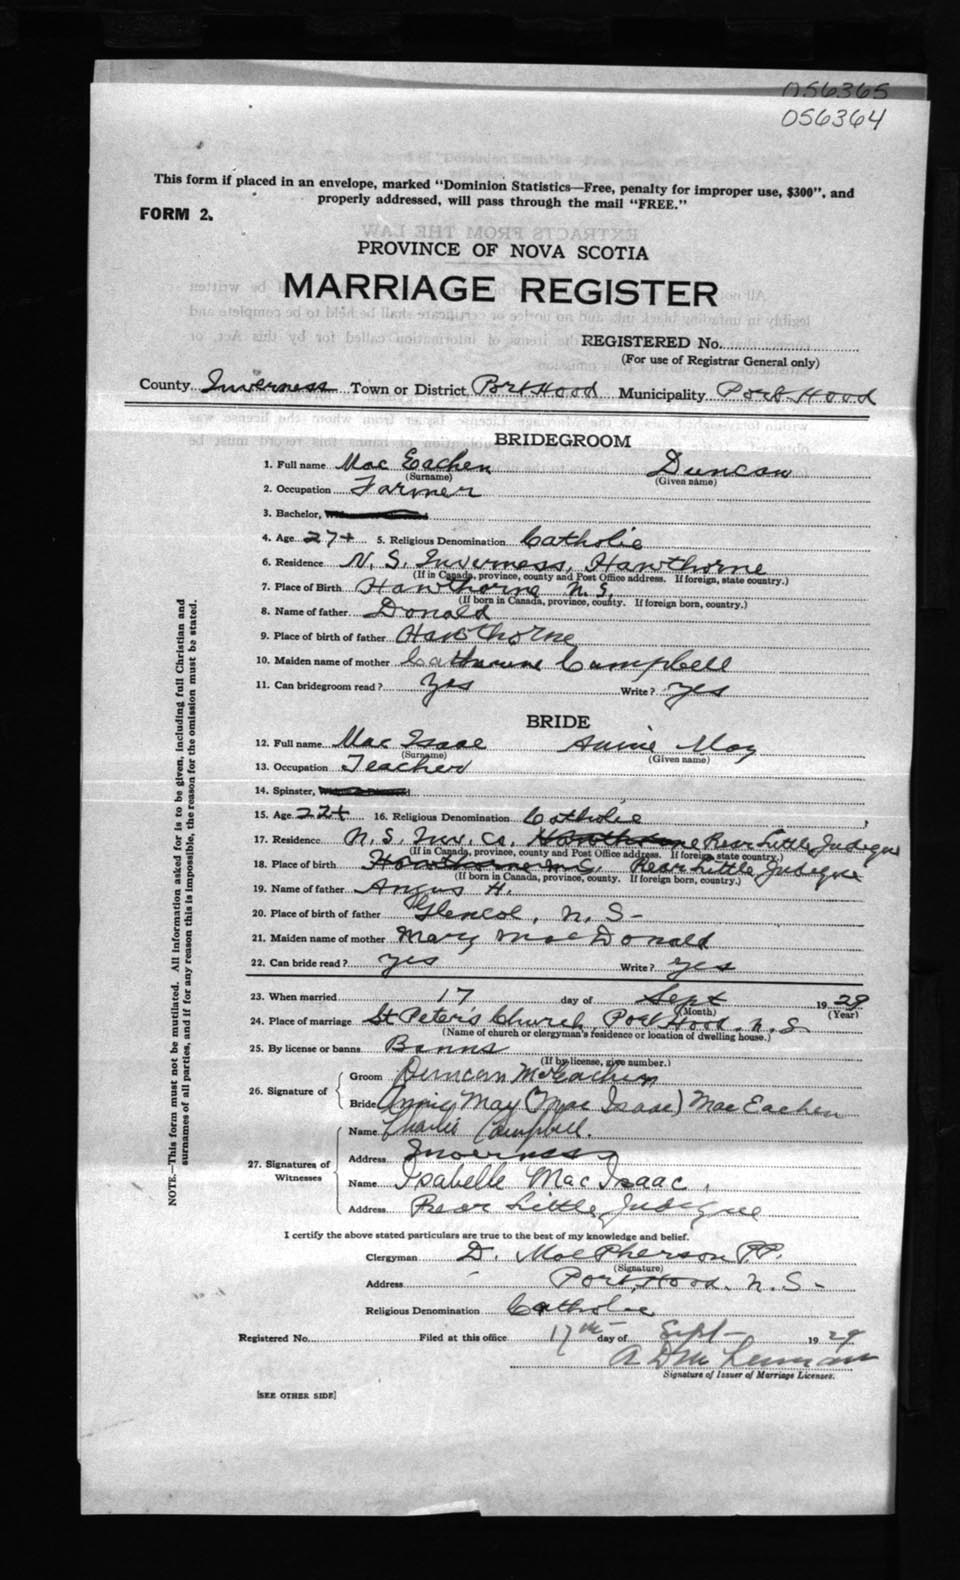 056365
056364
This form if placed in an envelope, marked "Dominion Statistics—Free, penalty for improper use, $300", and
properly addressed, will pass through the mail "FREE."
FORM 2.
PROVINCE OF NOVA SCOTIA
MARRIAGE REGISTER
REGISTERED No.
(For use of Registrar General only)
County Inverness Town or District Port Hood Municipality Port Hood
BRIDEGROOM
1. Full name Mac Eachen Duncan
(Surname) (Given name)
2. Occupation Farmer
3. Bachelor,
4. Age 27+ 5. Religious Denomination Catholic
6. Residence N. S. Inverness, Hawthorne
(If in Canada, province, county and Post Office address. If foreign, state country.)
7. Place of Birth Hawthorne N. S.
(If born in Canada, province, county. If foreign born, country.)
8. Name of father Donald
9. Place of birth of father Hawthorne
10. Maiden name of mother Catherine Campbell
11. Can bridegroom read? Yes Write? yes
BRIDE
12. Full name Mac Isaac Annie May
(Surname) (Given name)
13. Occupation Teacher
14. Spinster,
15. Age 22+ 16. Religious Denomination Catholic
17. Residence N. S. Inv. Co. Hawthorne Rear Little Judique
(If in Canada, province, county and Post Office address. If foreign, state country.)
18. Place of birth Hawthorne N.S. Rear Little Judique
(If born in Canada, province, county. If foreign born, country.)
19. Name of father Angus H.
20. Place of birth of father Glencoe, N. S-
21. Maiden name of mother Mary MacDonald
22. Can bride read? yes Write? yes
23. When married 17 day of Sept 1929
(Month) (Year)
24. Place of marriage St Peter's Church, Port Hood. N. S.
(Name of church or clergyman's residence or location of dwelling house.)
25. By license or banns Banns
(If by license, give number.)
26. Signature of Groom Duncan McEachern
Bride Annie May (Mac Isaac) Mac Eachen
27. Signatures of Witnesses Name Charlie Campbell.
Address Inverness
Name Isabelle Mac Isaac.
Address Rear Little Judique
I certify the above stated particulars are true to the best of my knowledge and belief.
Clergyman D. MacPherson P.P.
(Signature)
Address Port Hood. N. S-
Religious Denomination Catholic
Registered No. Filed at this office 17th day of Sept- 1929
A D Mc
Signature of Issuer of Marriage Licenses.
[SEE OTHER SIDE]
NOTE.—This form must not be mutilated. All information asked for is to be given, including full Christian and
surnames of all parties, and if for any reason this is impossible, the reason for the omission must be stated.